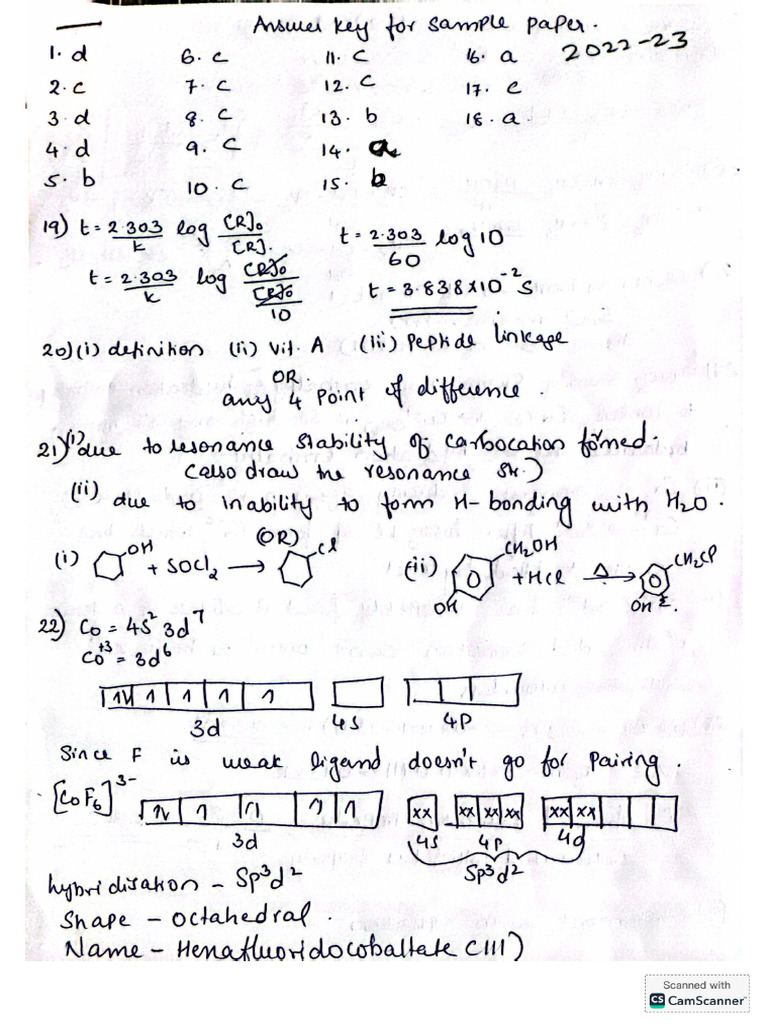 Answer key for sample paper.
2022-23
1. d 6. c 11. c 16. a
2. c 7. c 12. c 17. c
3. d 8. c 13. b 18. a.
4. d 9. c 14. a
5. b 10. c 15. b
19) t = 2.303/k log [R]₀/[R]. t = 2.303/60 log 10
t = 2.303/k log [R]₀/[R]₀/10 t = 3.838 x 10⁻² s
20) (i) definition (ii) Vit. A (iii) Peptide linkage
OR.
any 4 Point of difference.
21) (i) due to resonance stability of carbocation formed.
(also draw the resonance str.)
(ii) due to inability to form H-bonding with H₂O.
(OR)
(i) OH + SOCl₂ → Cl (ii) CH₂OH OH + HCl Δ→ CH₂Cl OH
22) Co = 4s² 3d⁷
Co⁺³ = 3d⁶
1L 1 1 1 1
3d 4s 4P
Since F is weak ligand doesn't go for Pairing.
[CoF₆]³⁻ 1L 1 1 1 1 xx xx xx xx xx xx
3d 4s 4P 4d
Sp³d²
hybridisation - Sp³d²
Shape - octahedral.
Name - Hexafluoridocobaltate (III)
Scanned with
CS CamScanner